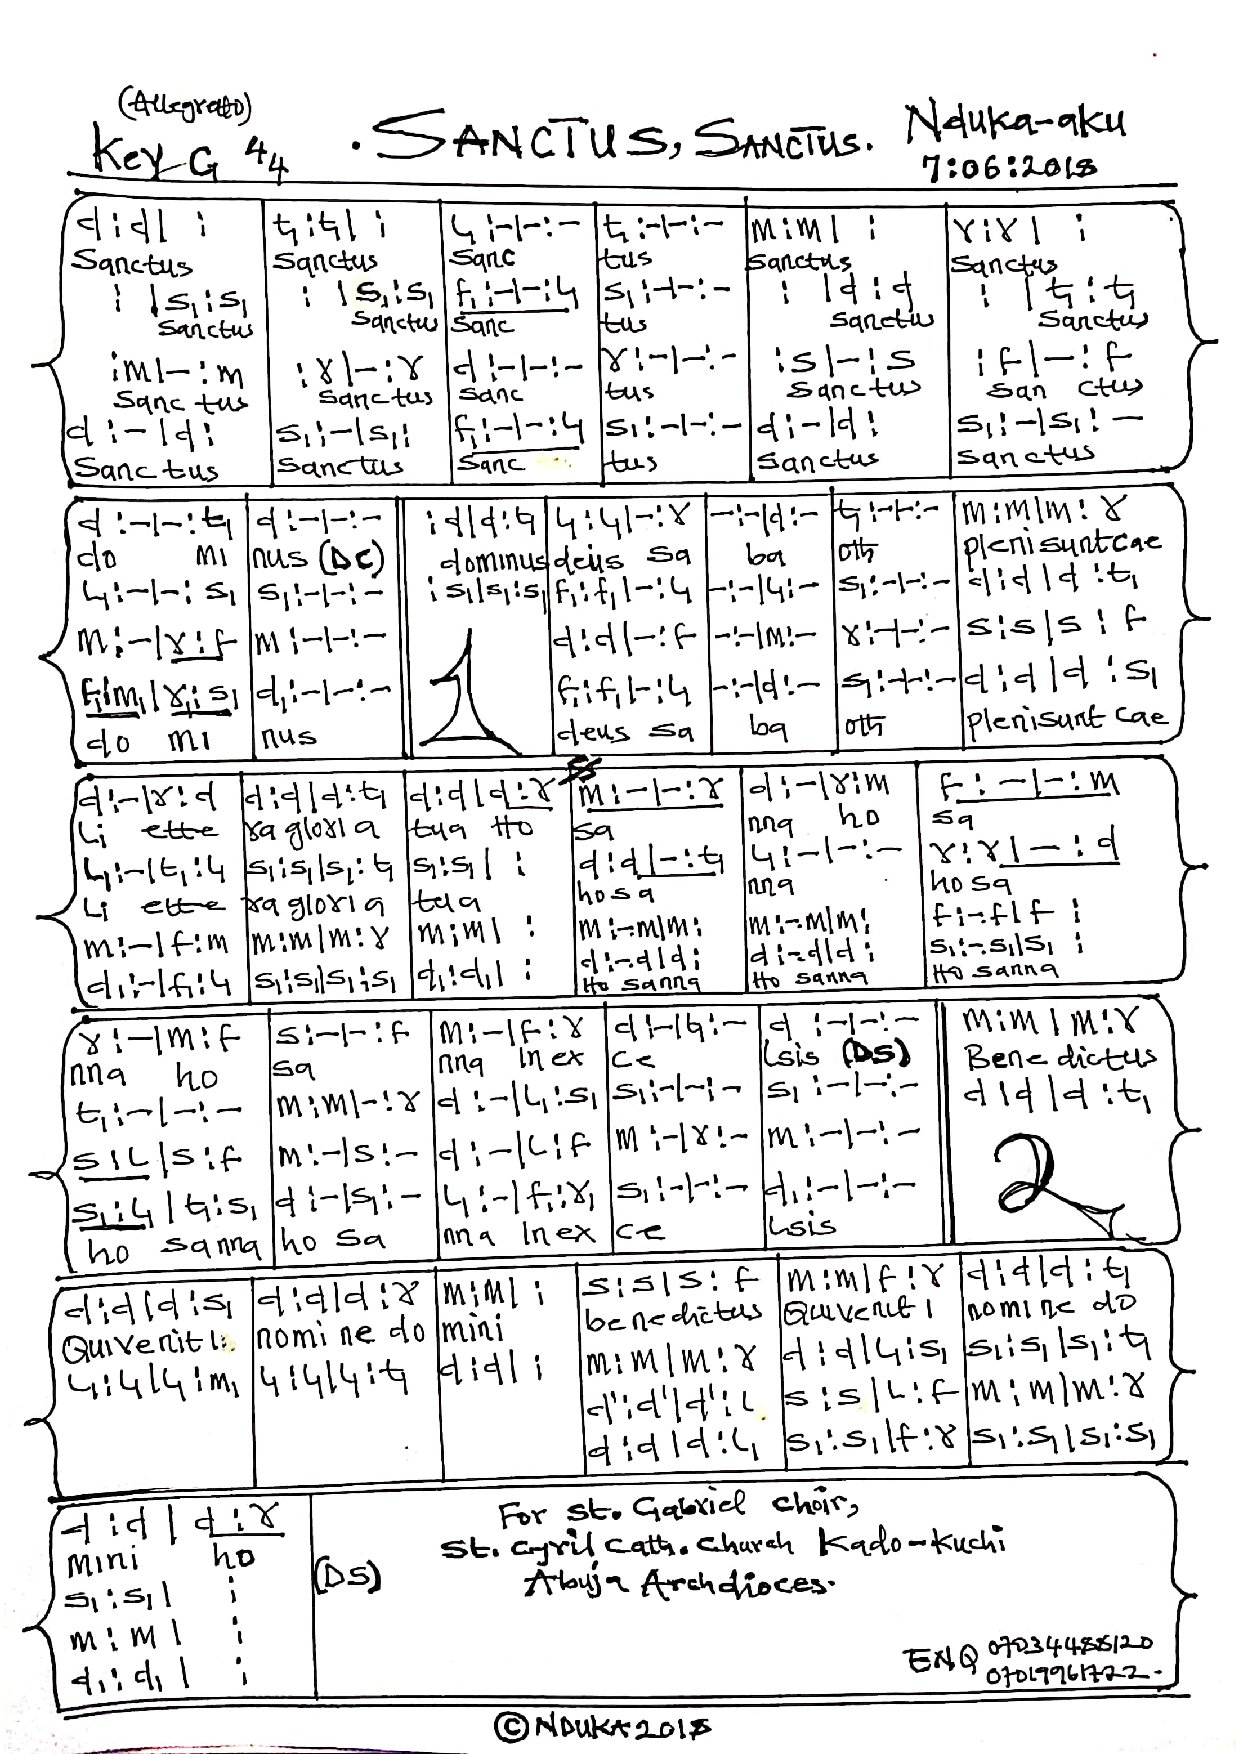 (Allegrato)
Key G 4/4 . SANCTUS, SANCTUS. Nduka-aku
7:06:2018
d:d| : t₁:t₁| : l₁:-|-:- t₁:-|-:- m:m| : r:r| :
Sanctus Sanctus Sanc tus Sanctus Sanctus
: |s₁:s₁ : |s₁:s₁ f₁:-|-:l₁ s₁:-|-:- : |d:d : |t₁:t₁
Sanctus Sanctus Sanc tus Sanctus Sanctus
:m|-:m :r|-:r d:-|-:- r:-|-:- :s|-:s :f|-:f
Sanc tus Sanctus Sanc tus Sanctus San ctus
d:-|d: s₁:-|s₁: f₁:-|-:l₁ s₁:-|-:- d:-|d: s₁:-|s₁:-
Sanctus Sanctus Sanc tus Sanctus Sanctus
d:-|-:t₁ d:-|-:- :d|d:t₁ l₁:l₁|-:r -:-|d:- t₁:-|-:- m:m|m:r
do mi nus (DC) dominus deius sa ba oth plenisuntcae
l₁:-|-:s₁ s₁:-|-:- :s₁|s₁:s₁ f₁:f₁|-:l₁ -:-|l₁:- s₁:-|-:- d:d|d:t₁
m:-|r:f m:-|-:- 1 d:d|-:f -:-|m:- r:-|-:- s:s|s:f
f₁:m₁|r₁:s₁ d₁:-|-:- f₁:f₁|-:l₁ -:-|d:- s₁:-|-:- d:d|d:s₁
do mi nus deus sa ba oth plenisunt cae
d:-|r:d d:d|d:t₁ d:d|d:r m:-|-:r d:-|r:m f:-|-:m
Li ette ra gloria tua Ho sa nna ho sa
l₁:-|t₁:l₁ s₁:s₁|s₁:t₁ s₁:s₁| : d:d|-:t₁ l₁:-|-:- r:r|-:d
Li ette ra gloria tua hosa nna hosa
m:-|f:m m:m|m:r m:m| : m:-.m|m: m:-.m|m: f:-.f|f :
d₁:-|f₁:l₁ s₁:s₁|s₁:s₁ d₁:d₁| : d:-.d|d: d:-.d|d: s₁:-.s₁|s₁ :
Ho sanna Ho sanna Ho sanna
r:-|m:f s:-|-:f m:-|f:r d:-|t₁:- d:-|-:- m:m|m:r
nna ho sa nna In ex ce lsis (DS) Bene dictus
t₁:-|-:- m:m|-:r d:-|l₁:s₁ s₁:-|-:- s₁:-|-:- d:d|d:t₁
s:l|s:f m:-|s:- d:-|l:f m:-|r:- m:-|-:- 2
s₁:l₁|t₁:s₁ d:-|s₁:- l₁:-|f₁:r₁ s₁:-|-:- d₁:-|-:-
ho sanna ho sa nna In ex ce lsis
d:d|d:s₁ d:d|d:r m:m| : s:s|s:f m:m|f:r d:d|d:t₁
Quivenit I: nomi ne do mini benedictus Quivenit I nomi ne do
l₁:l₁|l₁:m₁ l₁:l₁|l₁:t₁ d:d| : m:m|m:r d:d|l₁:s₁ s₁:s₁|s₁:t₁
d':d'|d':l s:s|l:f m:m|m:r
d:d|d:l₁ s₁:s₁|f:r s₁:s₁|s₁:s₁
d:d|d:r
mini ho
s₁:s₁| :
m:m| :
d₁:d₁| :
(DS)
For St. Gabriel Choir,
St. Cyril Cath. Church Kado-Kuchi
Abuja Archdioces.
ENQ 07034488120
07017961722.
©NDUKA2018